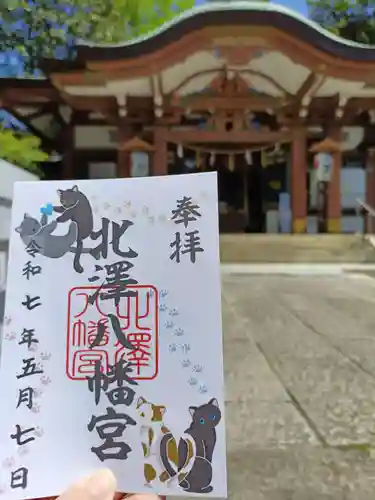 奉拝
北澤八幡宮
北澤八幡宮
令和七年五月七日